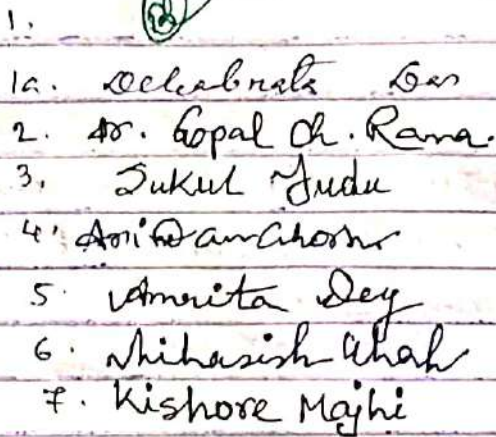 1.
1a. Debabrata Das
2. Dr. Gopal Ch. Rana.
3. Sukul
4. Arindam Ghosh
5. Amrita Dey
6. Shah
7. Kishore Majhi